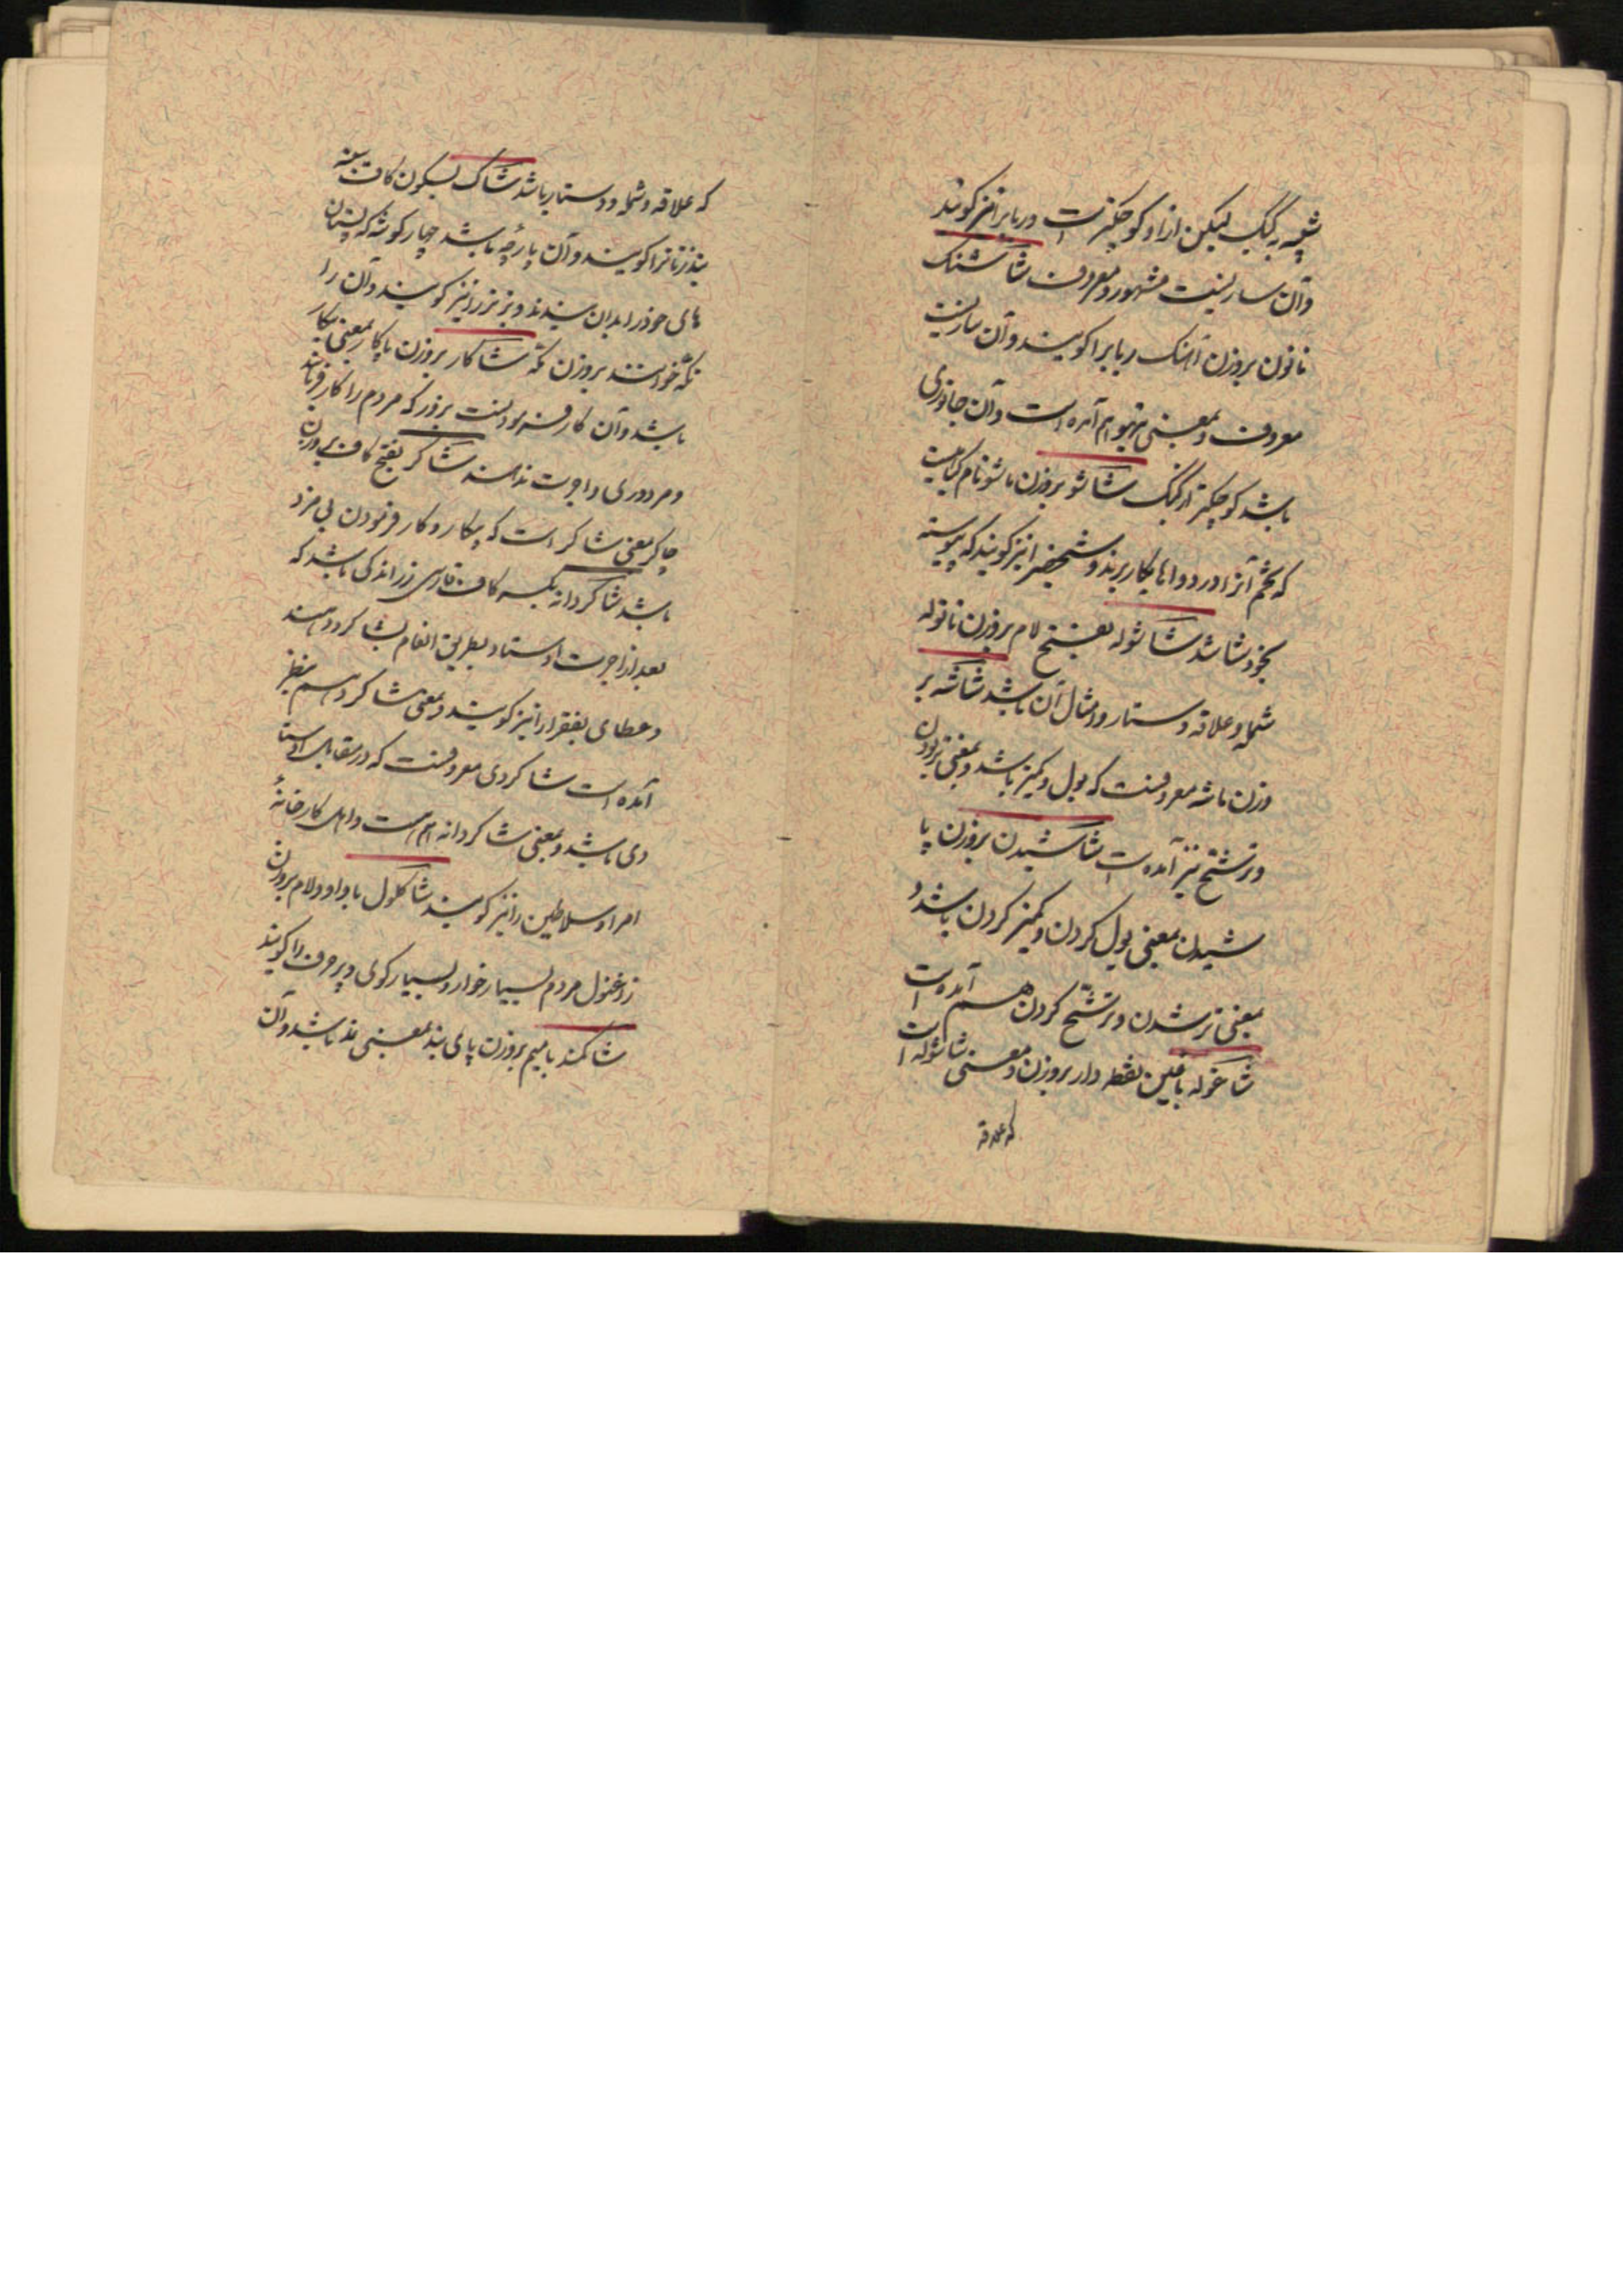 شبیه به کبک لیکن از او کوچکتر است و ربابرا نیز کویند
و آن سازیست مشهور و معروف شاشنک
بانون بروزن آهنک ربابرا کویند و آن سازیست
معروف و بمعنی تیهو هم آمده است و آن جانوری
باشد کوچکتر از کبک شاشو بروزن ماشو نام کیاهیست
که تخم آنرا در دواها بکار برند و شخصی را نیز کویند که پیوسته
بخود شاشد شاشوله بفتح لام بروزن نانوله
شمله و علاقه دستار و امثال آن باشد شاشه بر
وزن ماشه معروفست که بول و کمیز باشد و بمعنی تر بودن
و ترشح نیز آمده است شاشیدن بروزن پا
شیدن بمعنی بول کردن و کمیز کردن باشد و
بمعنی تر شدن و ترشح کردن هم آمده است
شاغوله با غین نقطه دار بروزن و معنی شاشوله است
که علاقه
که علاقه و شمله و دستار باشد شاک بسکون کاف سینه
بند زنانرا کویند و آن پارچه باشد چهار کوشه که پستان
های خود را بدان بندند و بز نر را نیز کویند و آن را
تکه خوانند بروزن مکه شاکار بروزن ناچار بمعنی بیکار
باشد و آن کار فرمودنست بزور که مردم را کار فرمایند
و مزدوری و اجرت ندهند شاکر بفتح کاف بروزن
چاکر بمعنی شاکار است که بیکار و کار فرمودن بی مزد
باشد شاکردانه بکسر کاف فارسی زر اندکی باشد که
بعد از اجرت استاد بطریق انعام بشاکرد دهند
و عطای بفقرا را نیز کویند و بمعنی شاکرد هم بنظر
آمده است شاکردی معروفست که در مقابل استا
دی باشد و بمعنی شاکردانه هم هست و اهل کارخانهٔ
امرا و سلاطین را نیز کویند شاکلول با واو و لام بروزن
زاغنول مردم بسیار خوار و بسیار کوی و پر حرف را کویند
شاکمند با میم بروزن پای بند بمعنی نمد باشد و آن